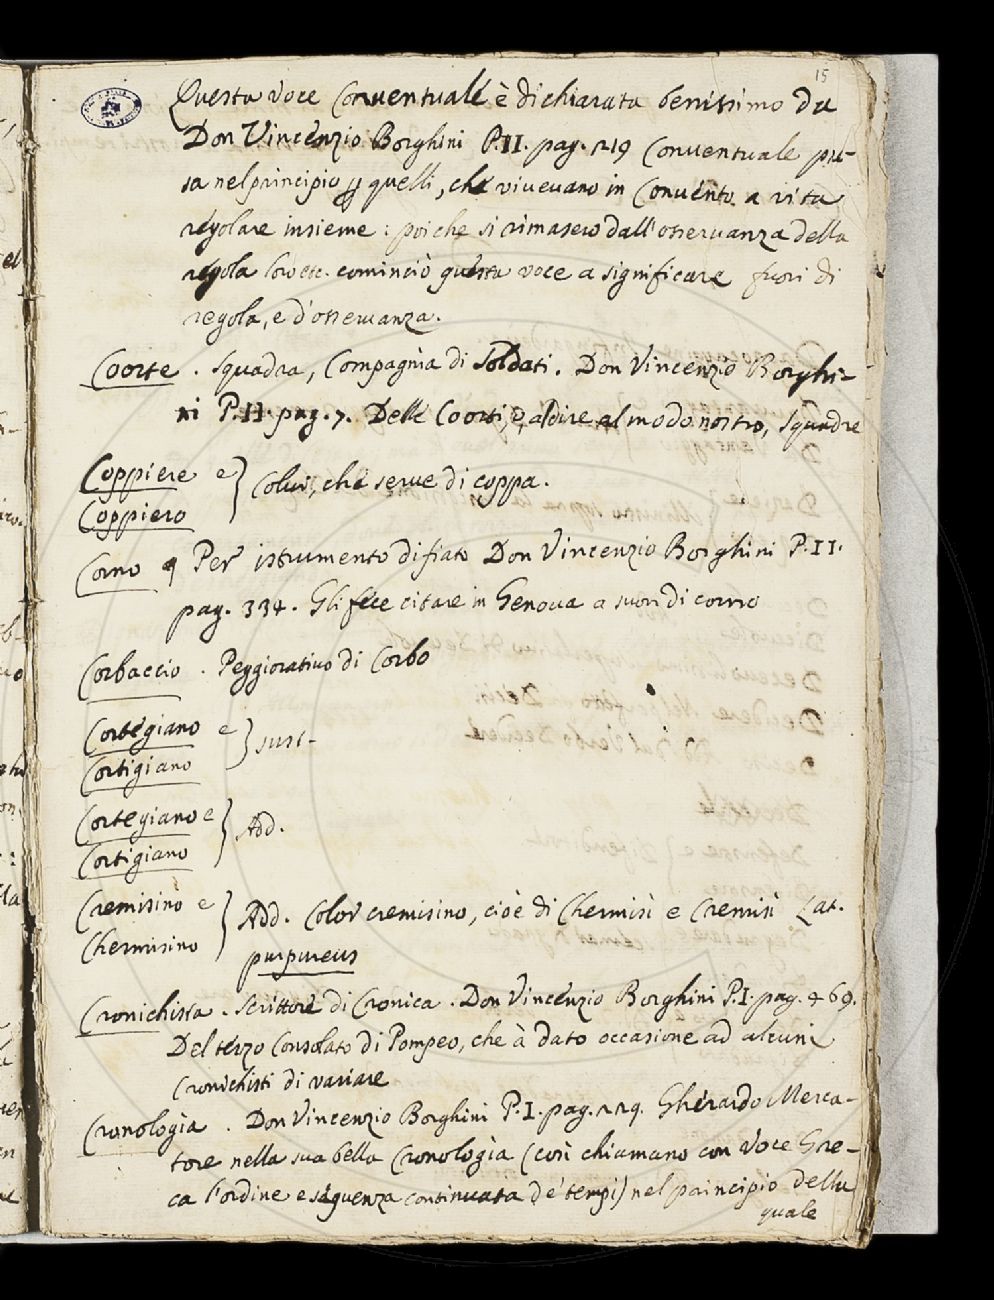 15
Questa voce Conventuale è dichiarata benissimo da
Don Vincenzio Borghini P.II. pag. 219 Conventuale pre-
sa nel principio p quelli, che vivevano in Convento a vita
regolare insieme: poiche si rimasero dall'osservanza della
regola loro etc. cominciò questa voce a significare fuori di
regola, e d'osservanza.
Coorte. Squadra, Compagnia di Soldati. Don Vincenzio Borghi-
ni P.II. pag. 7. Delle Coorti, o al dire al modo nostro, squadre
Coppiere e
Coppiero } Colui, che serve di coppa.
Corno Per istrumento di fiato Don Vincenzio Borghini P.II.
pag. 334. Gli fece citare in Genova a suon di corno
Corbaccio. Peggiorativo di Corbo
Cortegiano e
Cortigiano } sust.
Cortegiano e
Cortigiano } Add.
Cremisino e
Chermisino } Add. Color cremisino, cioè di Chermisì e Cremisì Lat.
purpureus
Cronichista. Scrittore di Cronica. Don Vincenzio Borghini P.I. pag. 469.
Del terzo Consolato di Pompeo, che à dato occasione ad alcuni
Cronichisti di variare
Cronologia. Don Vincenzio Borghini P.I. pag. 229. Gherardo Merca-
tore nella sua bella Cronologia (così chiamano con voce Gre-
ca l'ordine e seguenza continuata de' tempi) nel principio della
quale